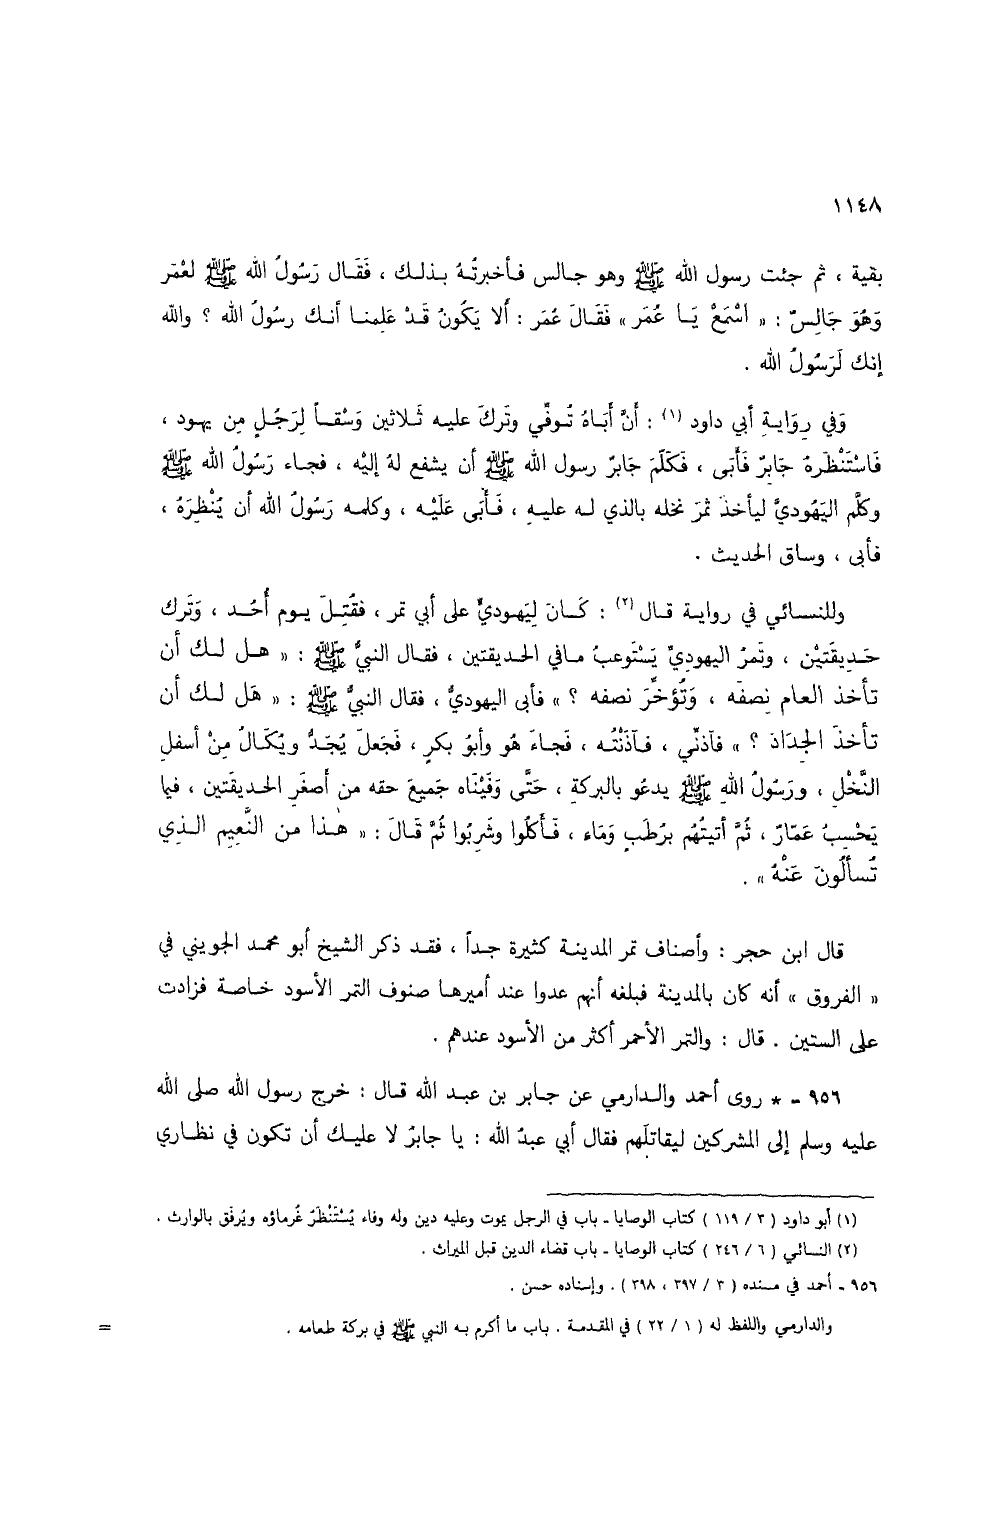 ١١٤٨
بقية ، ثم جئت رسول الله ﷺ وهو جالس فأخبرتُهُ بذلك ، فَقَال رَسُولُ الله ﷺ لعُمَر
وَهُوَ جَالِسٌ : « اسْمَعْ يَا عُمَر » فَقَالَ عُمَر : أَلا يَكُونُ قَدْ عَلِمنا أنك رسولُ الله ؟ والله
إنك لَرَسُولُ الله .
وَفي رِوَايةِ أبي داود (١) : أَنَّ أَبَاهُ تُوفِّي وتَركَ عليه ثَلاثين وَسْقاً لِرَجُلٍ مِن يهود ،
فَاسْتَنْظَرهُ جَابِرٌ فَأَبَى ، فَكَلَّمَ جَابرٌ رسول الله ﷺ أن يشفع لهُ إليْه ، فجاء رَسُولُ الله ﷺ
وكلَّم اليَهُوديَّ ليأخذَ ثمرَ نخله بالذي له عليهِ ، فَأَبى عَلَيْه ، وكلمه رَسُولُ الله أن يُنْظِرَهُ ،
فأبى ، وساق الحديث .
وللنسائي في رواية قال (٢) : كَانَ لِيَهوديٍّ على أبي تمر ، فقُتِلَ يوم أُحُد ، وَتَرك
حَديقَتَيْن ، وتَمرُ اليهوديِّ يَسْتَوعبُ مافي الحديقتين ، فقال النبيُّ ﷺ : « هل لك أن
تأخذ العام نِصفَه ، وَتُؤخِّرَ نصفه ؟ » فأبى اليهوديُّ ، فقال النبيُّ ﷺ : « هَل لك أن
تأخذَ الجدَاذ ؟ » فآذنِّي ، فآذَنْتُه ، فَجاءَ هُو وأبوُ بكرٍ ، فَجَعلَ يُجَدُّ ويُكَالُ مِنْ أسفلِ
النَّخْل ، ورَسُولُ اللهِ ﷺ يدعُو بالبركةِ ، حَتَّى وَفَيْنَاه جَميعَ حقه من أصغَرِ الحديقَتين ، فيما
يَحْسِبُ عَمّارٌ ، ثُمَّ أتيتُهُم برُطَبٍ وَمَاء ، فَأكَلُوا وشَرِبُوا ثُمَّ قَالَ : « هٰذا من النَّعِيم الذِي
تُسألُونَ عَنْهُ » .
قال ابن حجر : وأصناف تمر المدينة كثيرة جداً ، فقد ذكر الشيخ أبو محمد الجويني في
« الفروق » أنه كان بالمدينة فبلغه أنهم عدوا عند أميرها صنوف التمر الأسود خاصة فزادت
على الستين . قال : والتمر الأحمر أكثر من الأسود عندهم .
٩٥٦ - * روى أحمد والدارمي عن جابر بن عبد الله قال : خرج رسول الله صلى الله
عليه وسلم إلى المشركين ليقاتلَهم فقال أبي عبدُ الله : يا جابرُ لا عليك أن تكون في نظاري
(١) أبو داود ( ٣ / ١١٩ ) كتاب الوصايا - باب في الرجل يموت وعليه دين وله وفاء يُسْتَنْظَرُ غُرماؤه ويُرفَق بالوارث .
(٢) النسائي ( ٦ / ٢٤٦ ) كتاب الوصايا - باب قضاء الدين قبل الميراث .
٩٥٦ - أحمد في مسنده ( ٣ / ٣٩٧ ، ٣٩٨ ) . وإسناده حسن .
والدارمي واللفظ له ( ١ / ٢٢ ) في المقدمة . باب ما أكرم به النبي ﷺ في بركة طعامه .
=